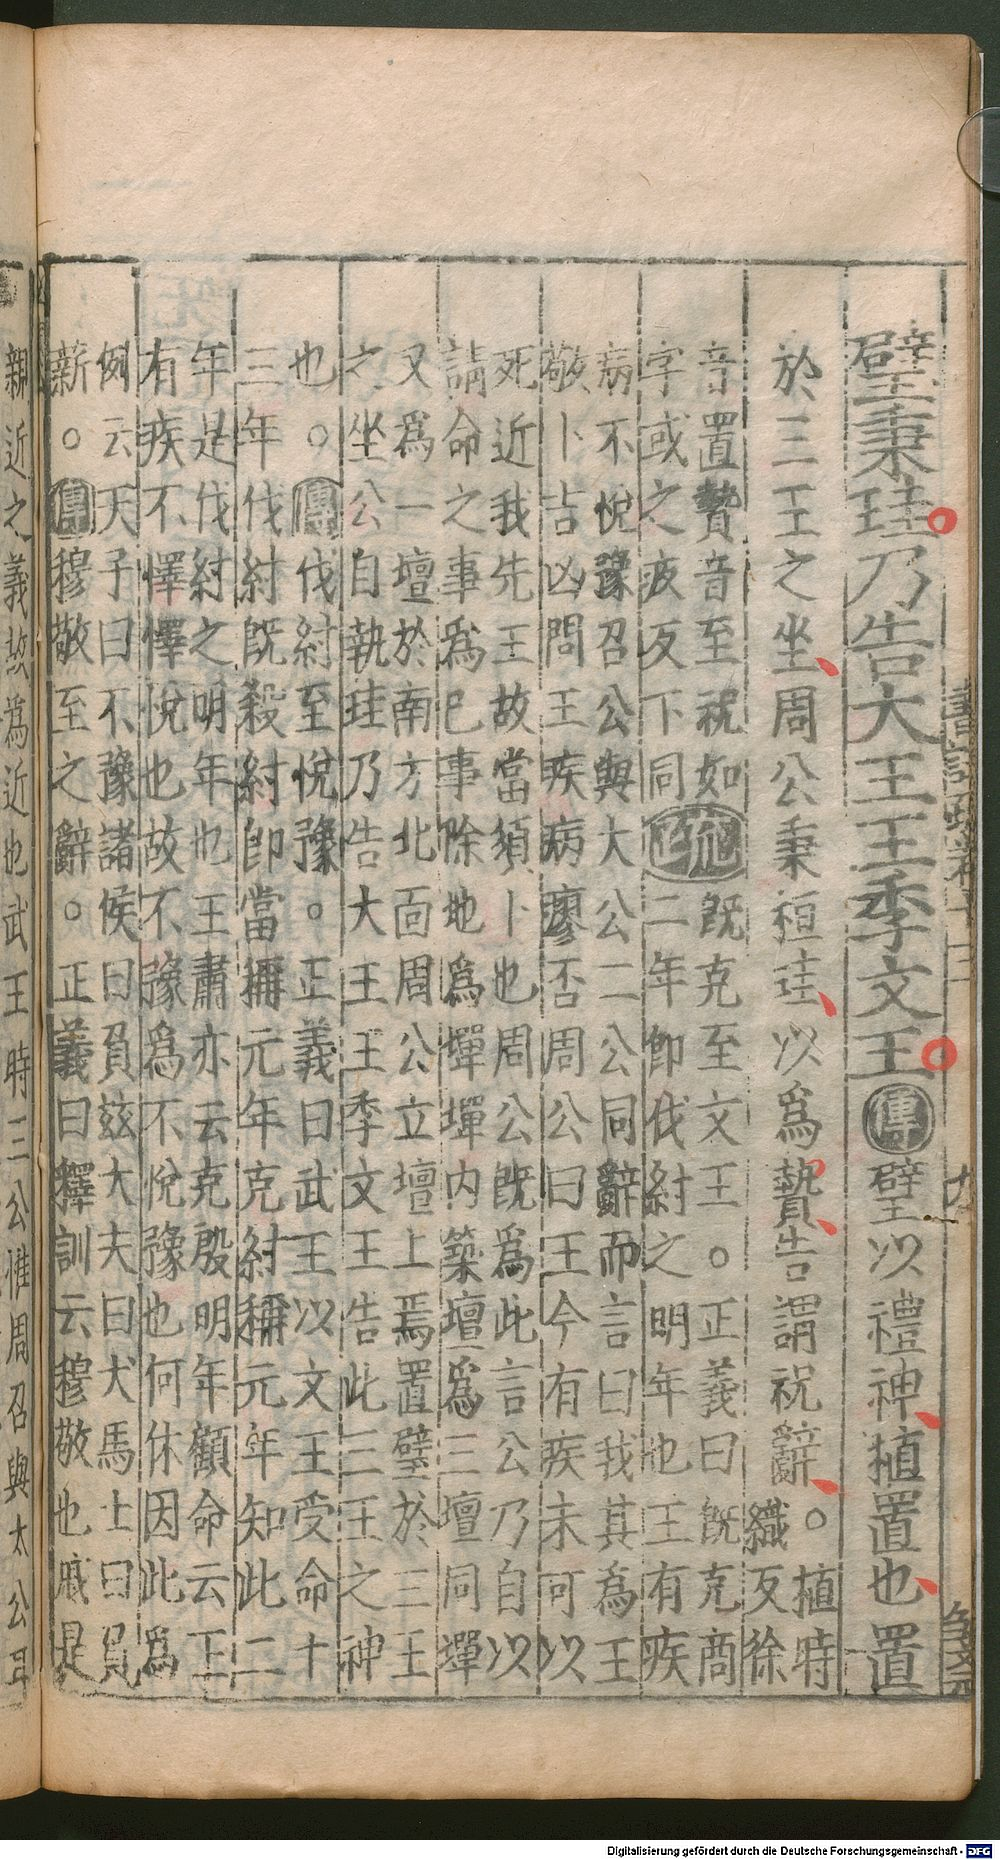 璧秉珪乃告大王王季文王傳璧以禮神植置也置
於三王之坐周公秉桓珪以爲贄告謂祝辭。植時
織反徐
音置贄音至祝如
字或之疚反下同疏既克至文王。正義曰既克商
二年即伐紂之明年也王有疾
病不悅豫召公與大公二公同辭而言曰我其爲王
敬卜吉凶問王疾病瘳否周公曰王今有疾未可以
死近我先王故當須卜也周公既爲此言公乃自以
請命之事爲己事除地爲墠墠內築壇爲三壇同墠
又爲一壇於南方北面周公立壇上焉置璧於三王
之坐公自執珪乃告大王王季文王告此三王之神
也。傳伐紂至悅豫。正義曰武王以文王受命十
三年伐紂既殺紂即當稱元年克紂稱元年知此二
年是伐紂之明年也王肅亦云克殷明年顧命云王
有疾不懌懌悅也故不豫爲不悅豫也何休因此爲
例云天子曰不豫諸侯曰負茲大夫曰犬馬士曰負
薪。傳穆敬至之辭。正義曰釋訓云穆敬也戚是
親近之義故爲近也武王時三公惟周召與太公耳
書註疏卷十三
九
Digitalisierung gefördert durch die Deutsche Forschungsgemeinschaft - DFG